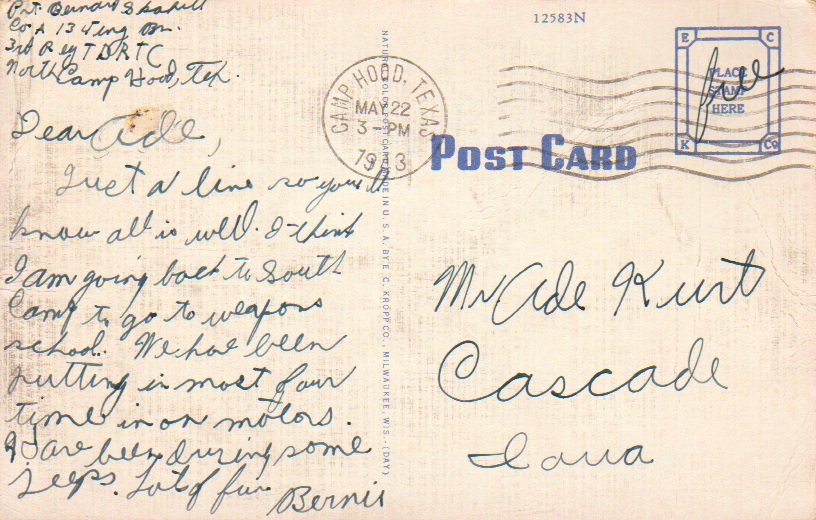 Pvt. Bernard
Co A 134 Eng Bn.
3rd Reg T D R T C
North Camp Hood, Tex.
Dear Ade,
Just a line so you'll
know all is well. I think
I am going back to South
Camp to go to weapons
school. We have been
putting in most of our
time in on motors.
Have been during some
Jeeps. Lots of fun
Bernie
NATURAL COLOR POST CARD MADE IN U. S. A. BY E. C. KROPP CO., MILWAUKEE, WIS. (DAY)
12583N
CAMP HOOD, TEXAS
MAY 22
3 - PM
1943
POST CARD
E C
PLACE
STAMP
HERE
K Co
Free
Mr Ade Kurt
Cascade
Iowa